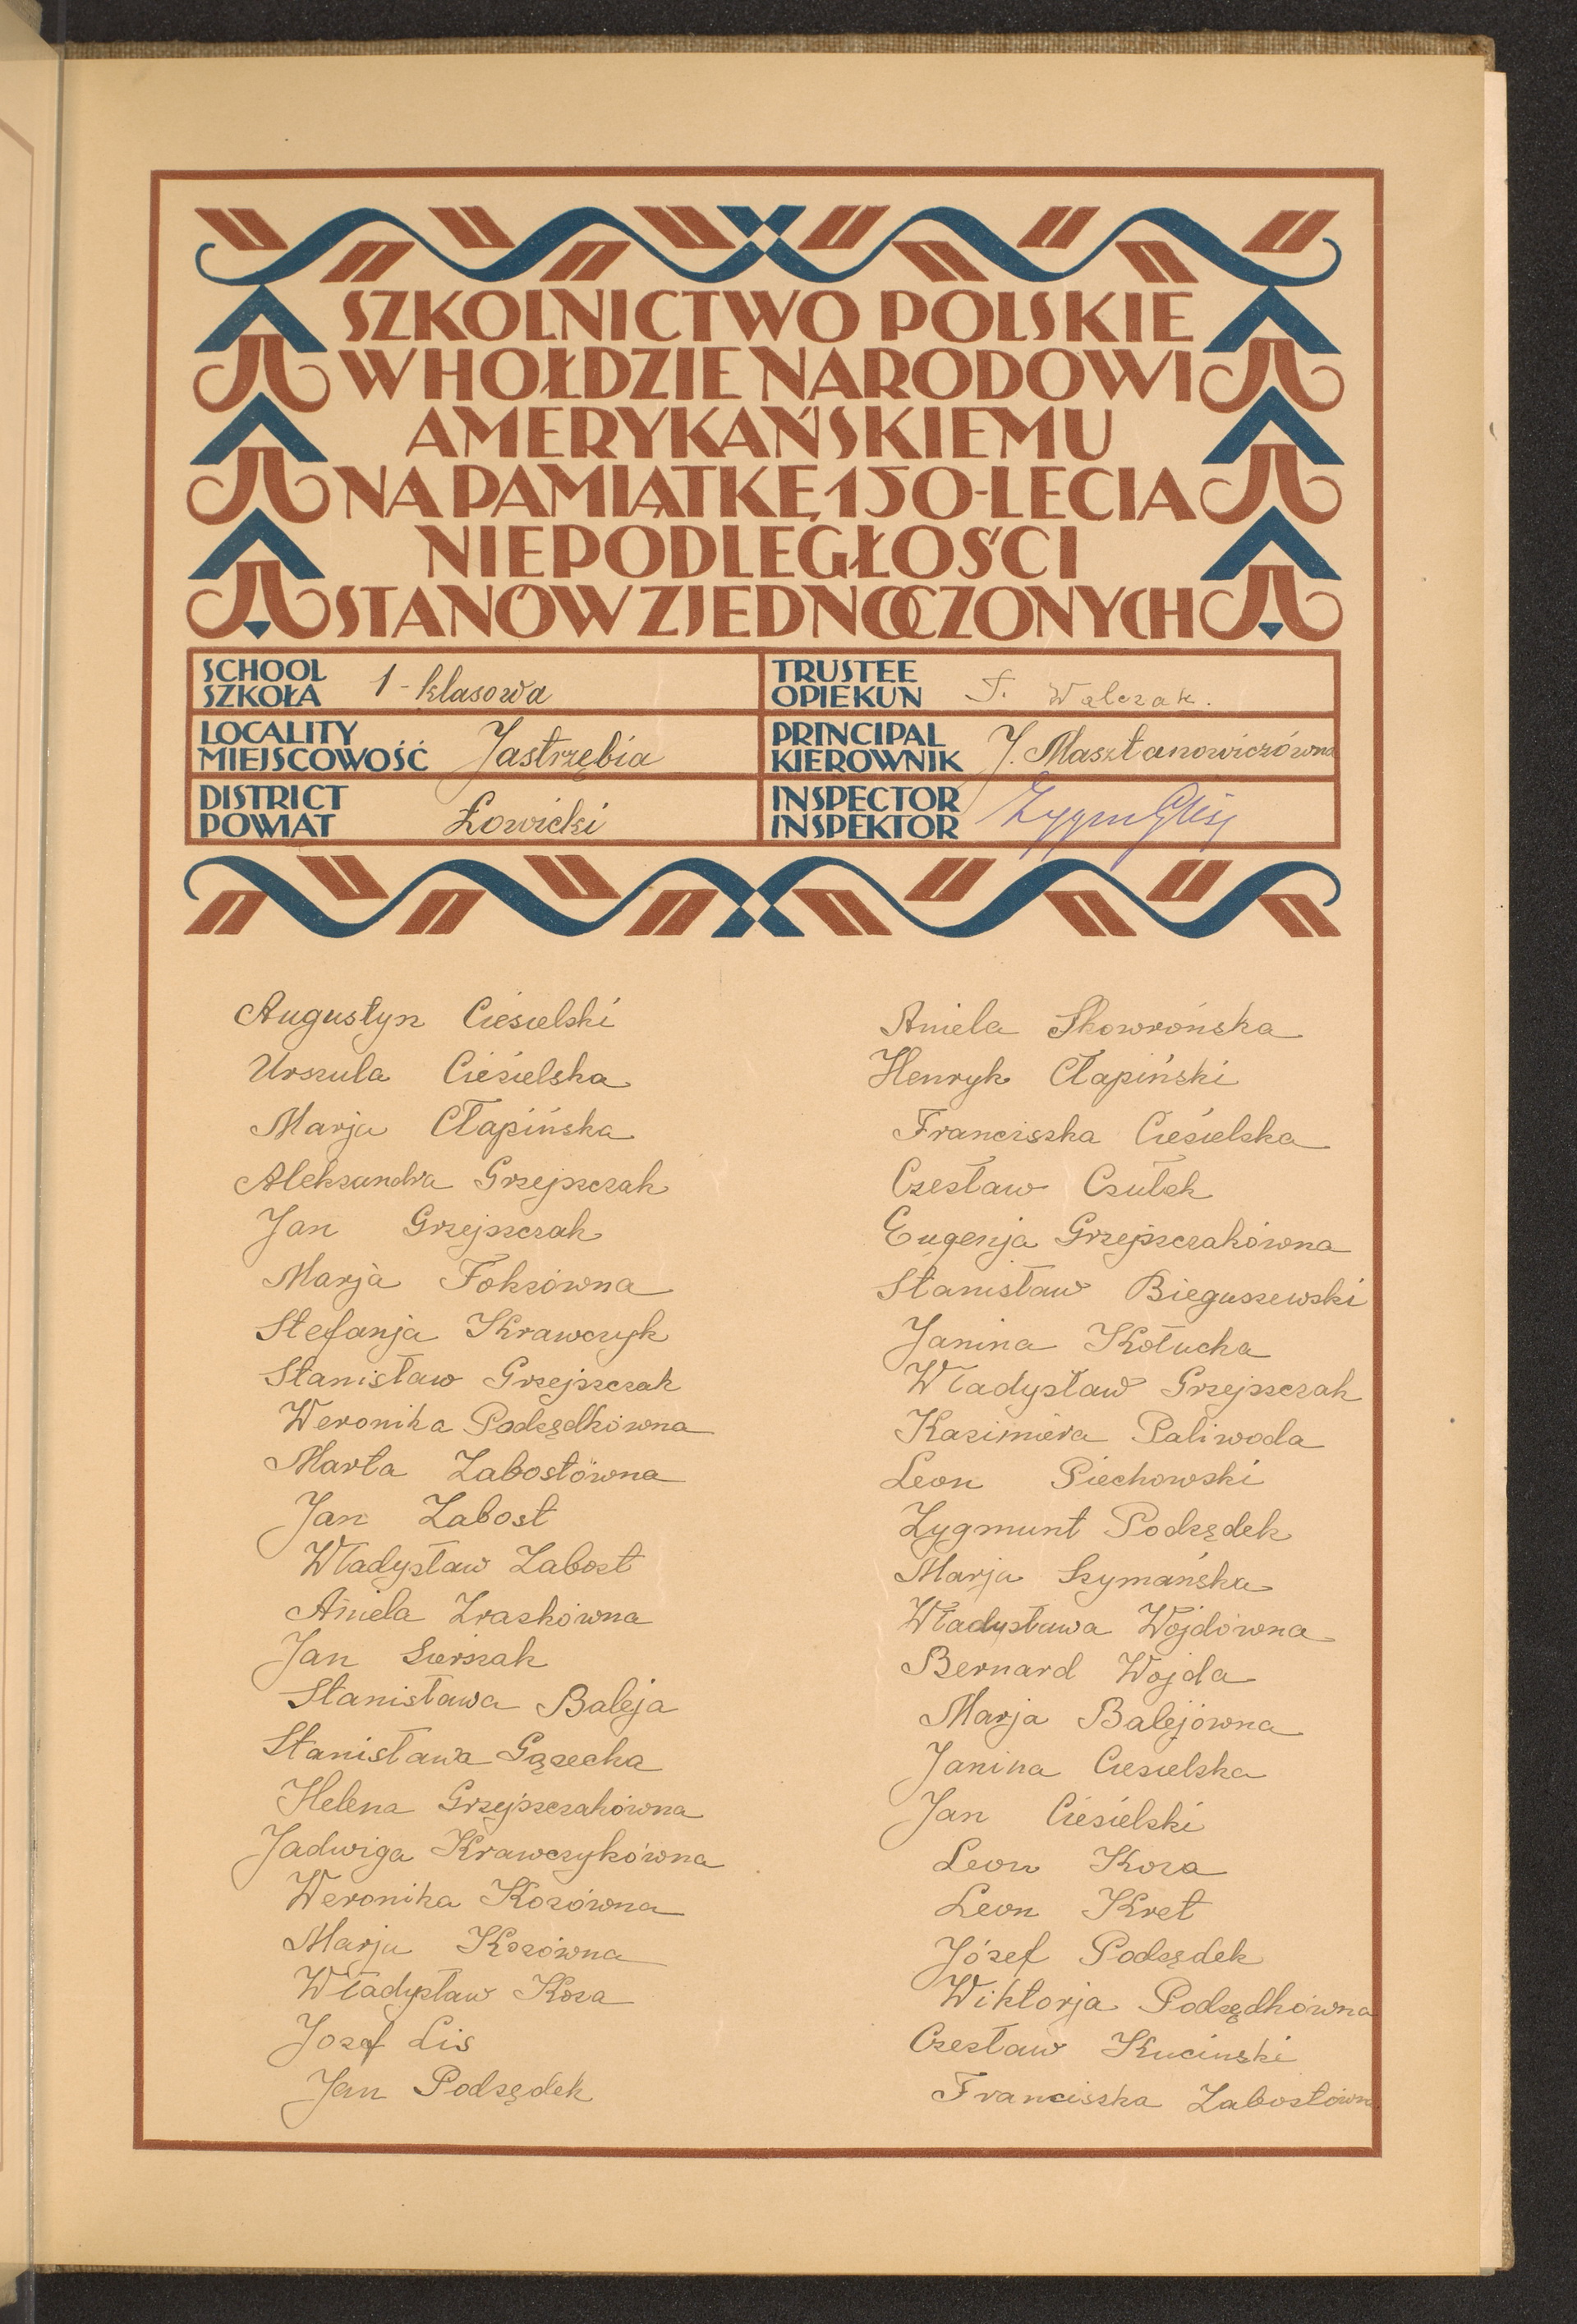 SZKOLNICTWO POLSKIE
W HOŁDZIE NARODOWI
AMERYKAŃSKIEMU
NA PAMIĄTKĘ 150-LECIA
NIEPODLEGŁOŚCI
STANÓW ZJEDNOCZONYCH
SCHOOL
SZKOŁA 1-klasowa
TRUSTEE
OPIEKUN F. Walczak.
LOCALITY
MIEJSCOWOŚĆ Jastrzębia
PRINCIPAL
KIEROWNIK J. Masztanowiczówna
DISTRICT
POWIAT Łowicki
INSPECTOR
INSPEKTOR
Augustyn Ciesielski
Urszula Ciesielska
Marja Cłapińska
Aleksandra Grzejszczak
Jan Grzejszczak
Marja Foksówna
Stefanja Krawczyk
Stanisław Grzejszczak
Weronika Podsędkówna
Marta Zabostówna
Jan Zabost
Władysław Zabost
Aniela Zraskówna
Jan Sierszak
Stanisława Baleja
Stanisława Gąsecka
Helena Grzejszczakówna
Jadwiga Krawczykówna
Weronika Kozówna
Marja Kozówna
Władysław Koza
Jozef Lis
Jan Podsędek
Aniela Skowrońska
Henryk Cłapiński
Franciszka Ciesielska
Czesław Csułek
Eugenja Grzejszczakówna
Stanisław Bieguszewski
Janina Kołucka
Władysław Grzejszczak
Kazimiera Paliwoda
Leon Piechowski
Zygmunt Podsędek
Marja Szymańska
Władysława Wójdówna
Bernard Wojda
Marja Balejówna
Janina Ciesielska
Jan Ciesielski
Leon Koza
Leon Kret
Józef Podsędek
Wiktorja Podsędkówna
Czesław Kucinski
Franciszka Zabostówna